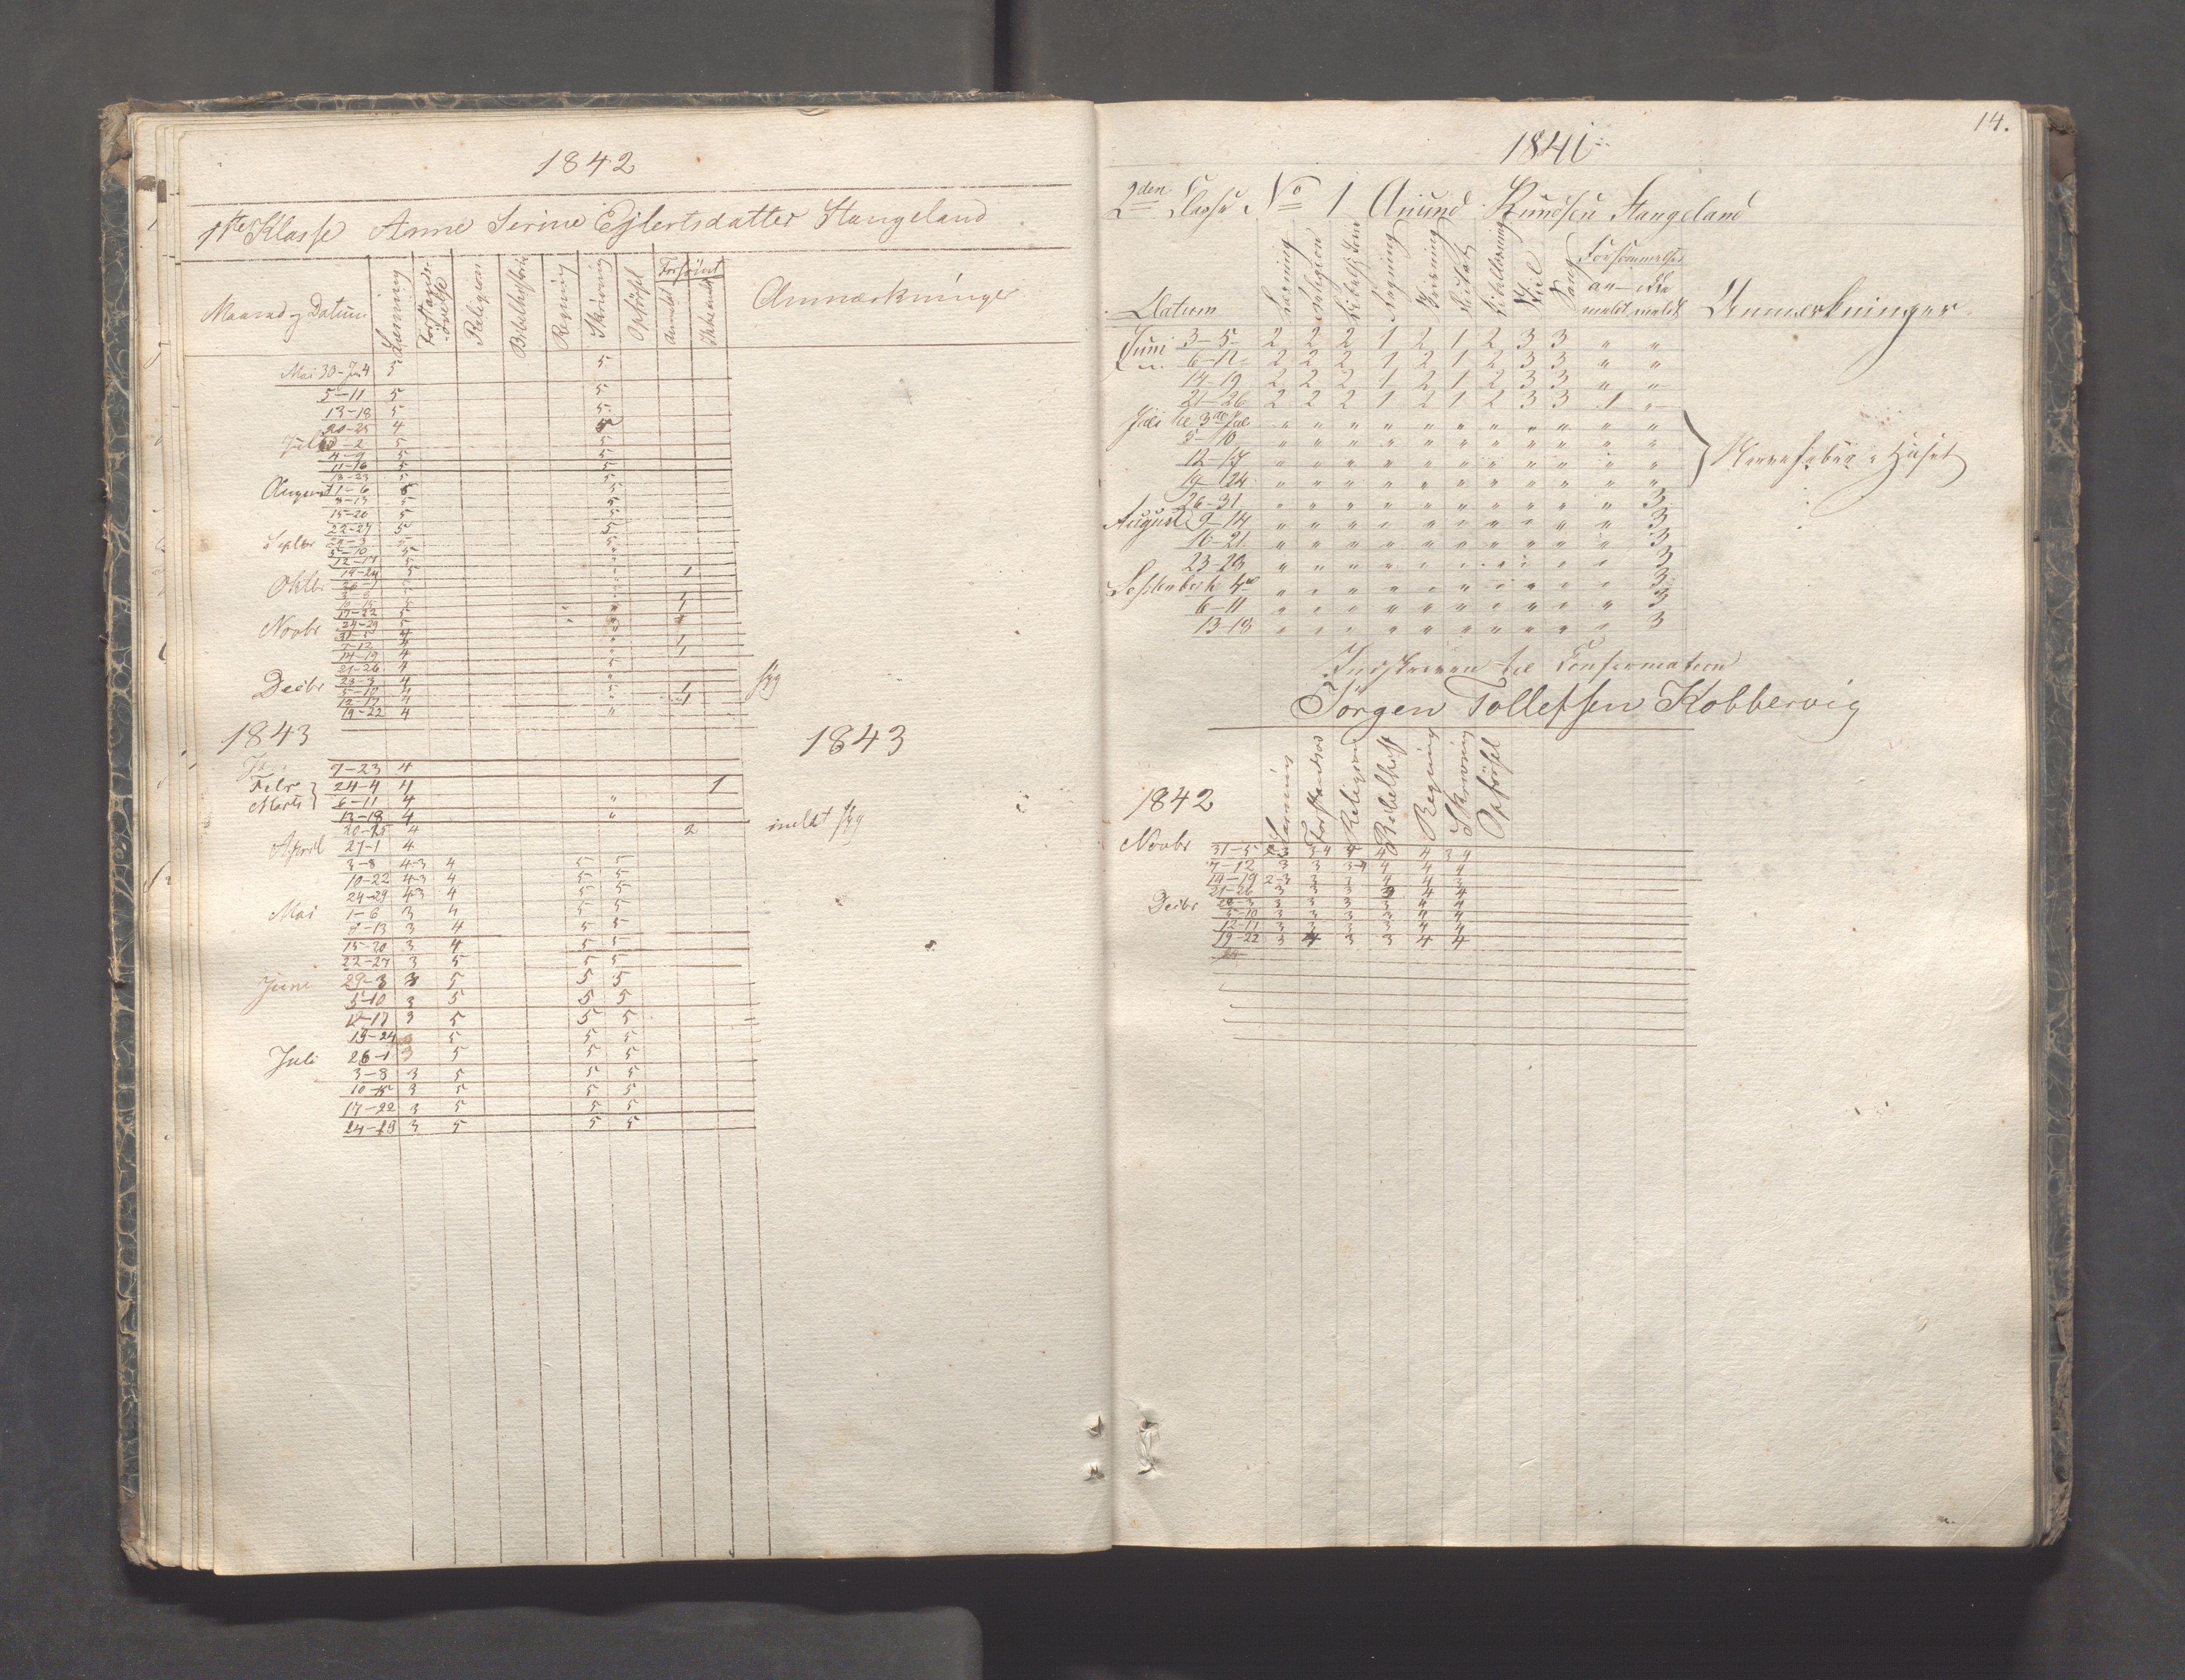 1842
1ste Klasse Anne Serine Ejlertsdatter Stangeland
Maaned og Datum Læsning Forstands-øvelse Religion Bibelhistorie Regning Skrivning Opførsel Forsømt Anmeldt Ikke anmeldt Anmærkninger
Mai 30-Jun 4 5 5
5-11 5 5
13-18 5 5
20-25 4
Juli 5 5
4-9 5 5
11-16 5 5
18-23 5 5
August 1-6 5 5
8-13 5 5
15-20 5 5
22-27 5 5
Septbr 29-3 5
5-10 5 "
12-17 5 "
19-24 5 " 1
Oktbr
10-15 5 " 1
17-22 5 " 1
24-29 5 "
Novbr 31-5 4 "
7-12 4 " 1
14-19 4 " 1
21-26 4 5
Decbr 28-3 4 " syg
5-10 4 5 1
12-17 4 " 1
19-22 4 "
1843 1843
7-23 4
Febr 24-4 4 1
Marts 6-11 4 "
13-18 4 "
20-25 4 2 meldt syg
April 27-1 4
3-8 4-3 4 5 5
10-22 4-3 4 5 5
24-29 4-3 4 5 5
Mai 1-6 3 4 5 5
8-13 3 4 5 5
15-20 3 4 5 5
22-27 3 5 5 5
Juni 29-3 3 5 5 5
5-10 3 5 5 5
12-17 3 5 5 5
19-24 3 5 5 5
Juli 26-1 3 5 5 5
3-8 3 5 5 5
10-15 3 5 5 5
17-22 3 5 5 5
24-29 3 5 5 5
14.
1841
2den Classe No 1 Amund Knudsen Stangeland
Datum Læsning Religion Regning Skrivning Flid Bibellæsning Stiil Sang Forsømmelser an- ikke meldt meldt Anmærkninger
Juni 3-5 2 2 2 1 2 1 2 3 3 " "
6-12 2 2 2 1 2 1 2 3 3 " "
14-19 2 2 2 1 2 1 2 3 3 " "
21-26 2 2 2 1 2 1 2 3 3 1 "
Juli til 3die Jul " " " " " " " " " " "
5-10 " " " " " " " " " " "
12-17 " " " " " " " " " " " Nervefeber i Huset
19-24 " " " " " " " " " " "
26-31 " " " " " " " " " " 3
August 9-14 " " " " " " " " " " 3
16-21 " " " " " " " " " " 3
23-28 " " " " " " " " " " 3
September til 4de " " " " " " " " " " 3
6-11 " " " " " " " " " " 3
13-18 " " " " " " " " " " 3
Indskreven til Confirmation
Jörgen Tollefsen Kobbervig
1842 Læsning Religion Bibelhist Regning Skrivning Opförsel
Novbr 31-5 3 4 4 4 4 3 4
7-12 3 3 3-4 4 4 4
14-19 2-3 3 3 4 4 3
21-26 3 3 3 3 4 4
Decbr 28-3 3 3 3 3 4 4
5-10 3 3 3 3 4 4
12-17 3 3 3 3 4 4
19-22 3 4 3 3 4 4
24